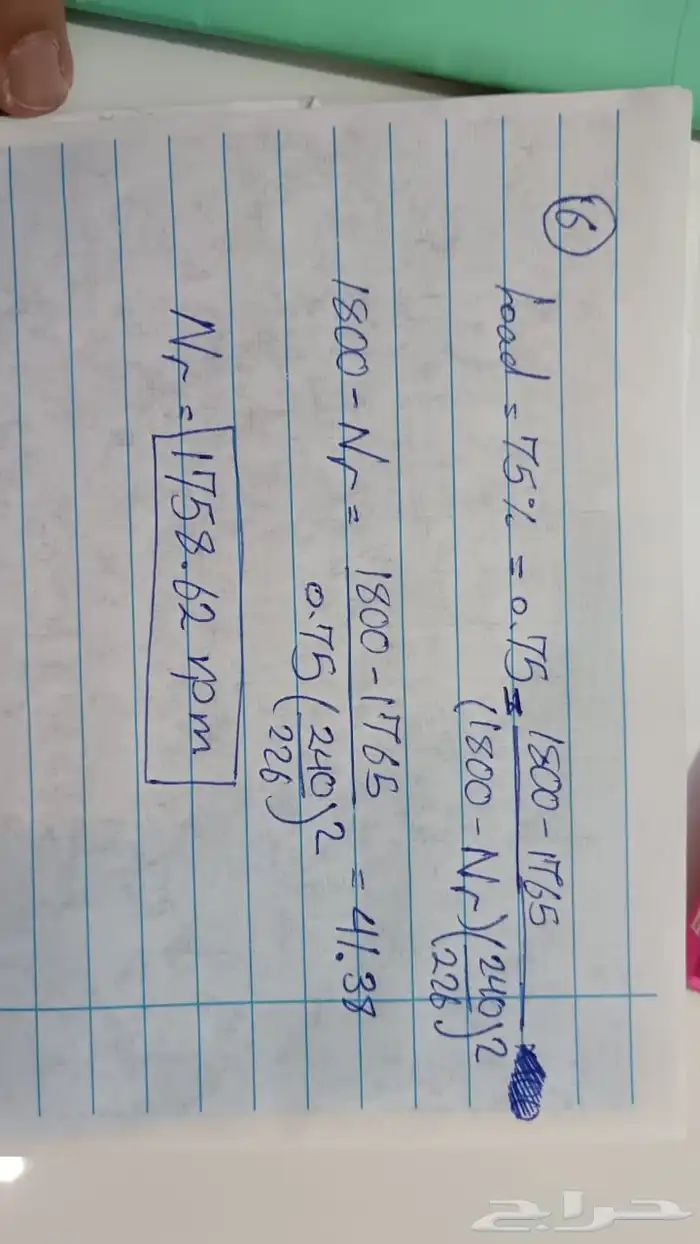 16
Load = 75% = 0.75 = 1800 - 1765 / (1800 - Nr)(240/226)2
1800 - Nr = 1800 - 1765 / 0.75 (240/226)2 = 41.38
Nr = 1758.62 rpm
حراج